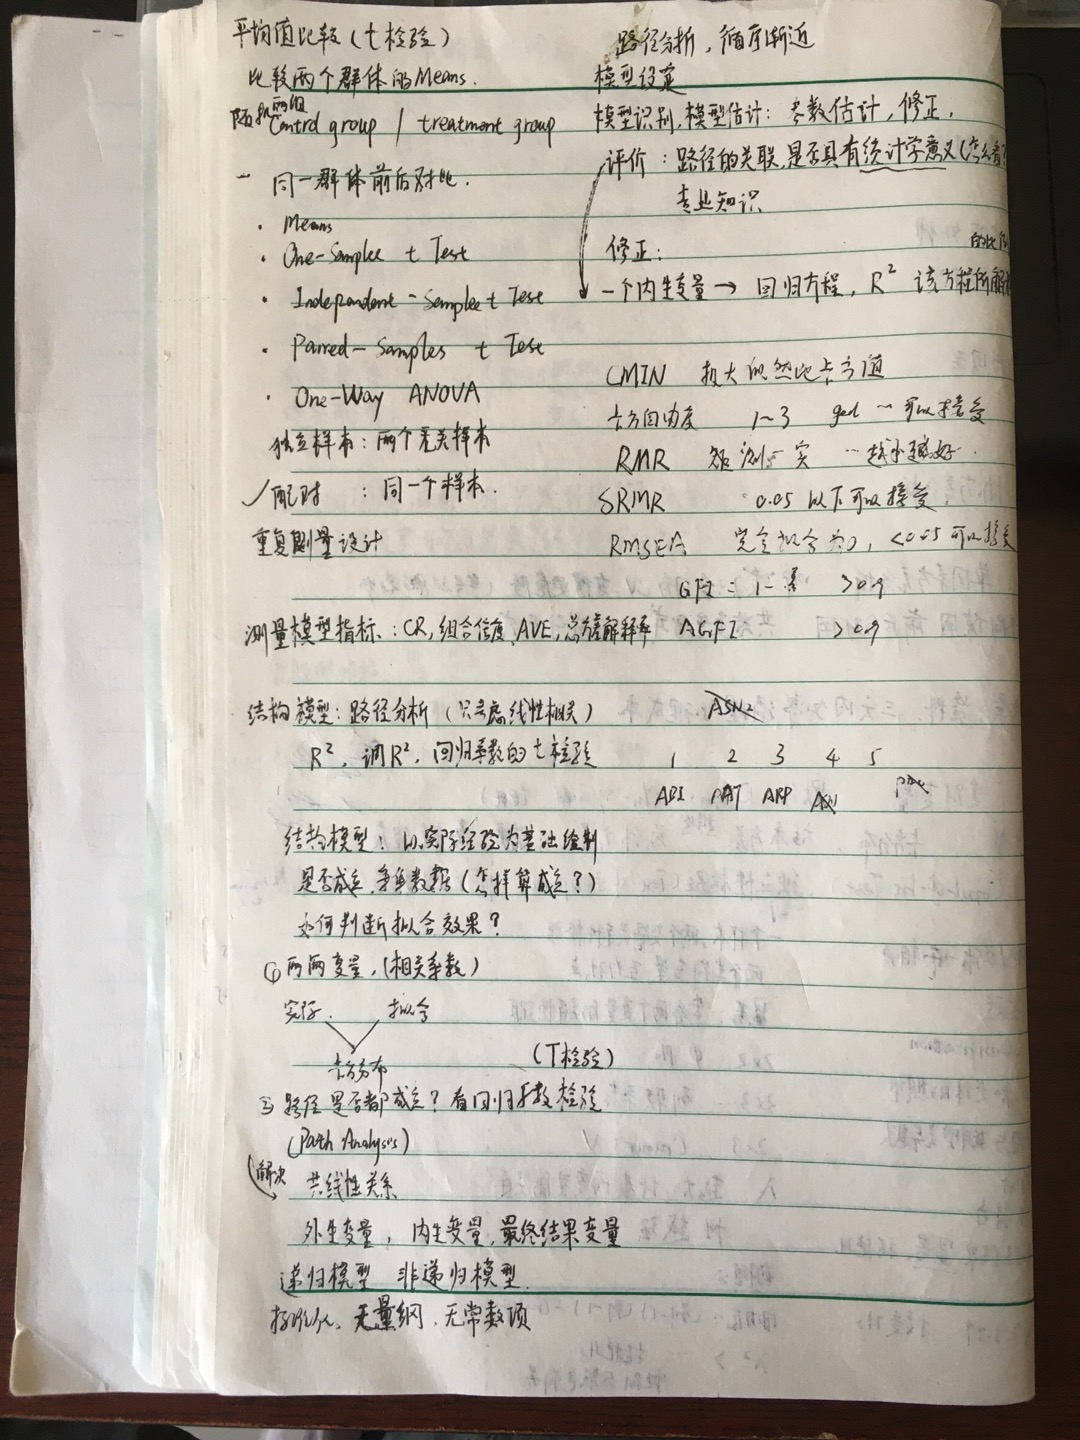 平均值比较(t检验)
比较两个群体的Means.
随机两组
Control group / treatment group
一 同一群体前后对比.
· Means
· One-Samplee t Test
· Independent-Samplee t Test
· Paired-Samples t Test
· One-Way ANOVA
独立样本:两个无关样本
✓配对 :同一个样本.
重复测量设计
测量模型指标:CR,组合信度,AVE,总方差解释率
结构模型:路径分析(只考虑线性相关)
R²,调R²,回归系数的t检验
结构模型:以实际经验为基础绘制
是否成立,数据(怎样算成立?)
如何判断拟合效果?
① 两两变量,(相关系数)
实际 拟合
卡方分布
(T检验)
② 路径是否都成立?看回归系数检验
(Path Analysis)
解决 共线性关系
外生变量,内生变量,最终结果变量
递归模型 非递归模型.
标准化、无量纲、无常数项
路径分析,循序渐近
模型设定
模型识别,模型估计:参数估计,修正.
评价:路径的关联,是否具有统计学意义(怎么看?
专业知识
修正:
一个内生变量→回归方程,R² 该方程所解释
的比例
CMIN 极大似然比卡方值
卡方自由度 1~3 good 可以接受
RMR 越小越好.
SRMR 0.05以下可以接受.
RMSEA 完全拟合为0,<0.05可以接受
GFI = 1- >0.9
AGFI >0.9
1 2 3 4 5